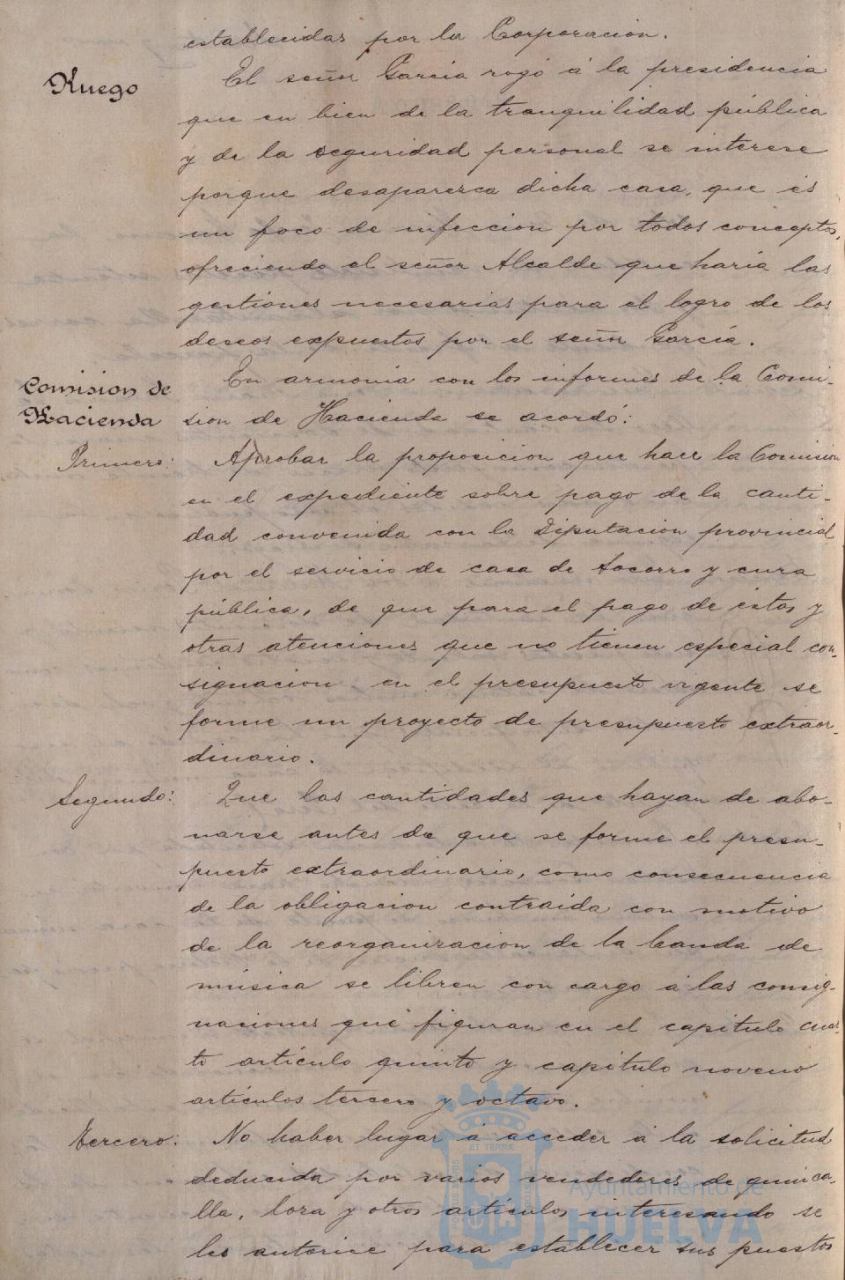 establecidas por la Corporacion.
Ruego
El señor García rogó á la presidencia
que en bien de la tranquilidad pública
y de la seguridad personal se interese
porque desaparezca dicha casa, que es
un foco de infeccion por todos conceptos,
ofreciendo el señor Alcalde que haría las
gestiones necesarias para el logro de los
deseos expuestos por el señor García.
Comision de
Hacienda
En armonía con los informes de la Comi-
sion de Hacienda se acordó:
Primero: Aprobar la proposicion que hace la Comision
en el expediente sobre pago de la canti-
dad convenida con la Diputacion provincial
por el servicio de casa de Socorro y cura
pública, de que para el pago de estos y
otras atenciones que no tienen especial con-
signacion en el presupuesto vigente se
forme un proyecto de presupuesto extraor-
dinario.
Segundo: Que las cantidades que hayan de abo-
narse antes de que se forme el presu-
puesto extraordinario, como consecuencia
de la obligacion contraída con motivo
de la reorganizacion de la banda de
música se libren con cargo á las consig-
naciones que figuran en el capítulo cuar-
to artículo quinto y capítulo noveno
artículos tercero y octavo.
Tercero: No haber lugar á acceder á la solicitud
deducida por varios vendedores de quinca-
lla, loza y otros artículos interesando se
les autorice para establecer sus puestos
Ayuntamiento de
HUELVA